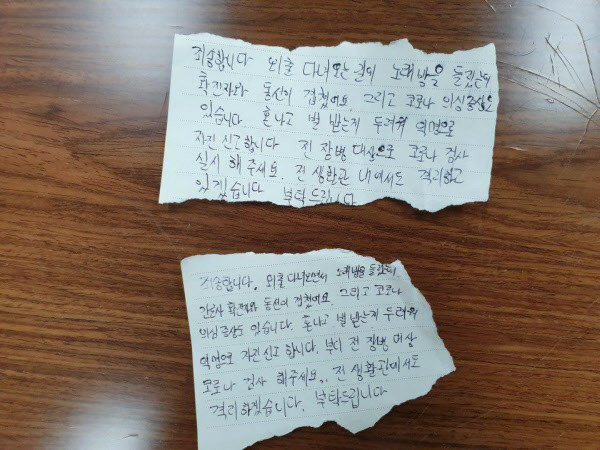 죄송합니다 외출 다녀오는길에 노래방을 들렸는데
확진자와 동선이 겹쳤어요. 그리고 코로나 의심증상도
있습니다 혼나고 벌 받는게 두려워 익명으로
자진신고합니다 전 장병 대상으로 코로나 검사
실시 해 주세요. 전 생활관 내에서도 격리하고
있겠습니다 부탁드립니다
죄송합니다. 외출 다녀오면서 노래방을 들렸는데
간호사 확진자와 동선이 겹쳤어요. 그리고 코로나
의심증상도 있습니다. 혼나고 벌 받는게 두려워
익명으로 자진신고 합니다. 부디 전 장병 대상
코로나 검사 해주세요.. 전 생활관에서도
격리하겠습니다. 부탁드립니다